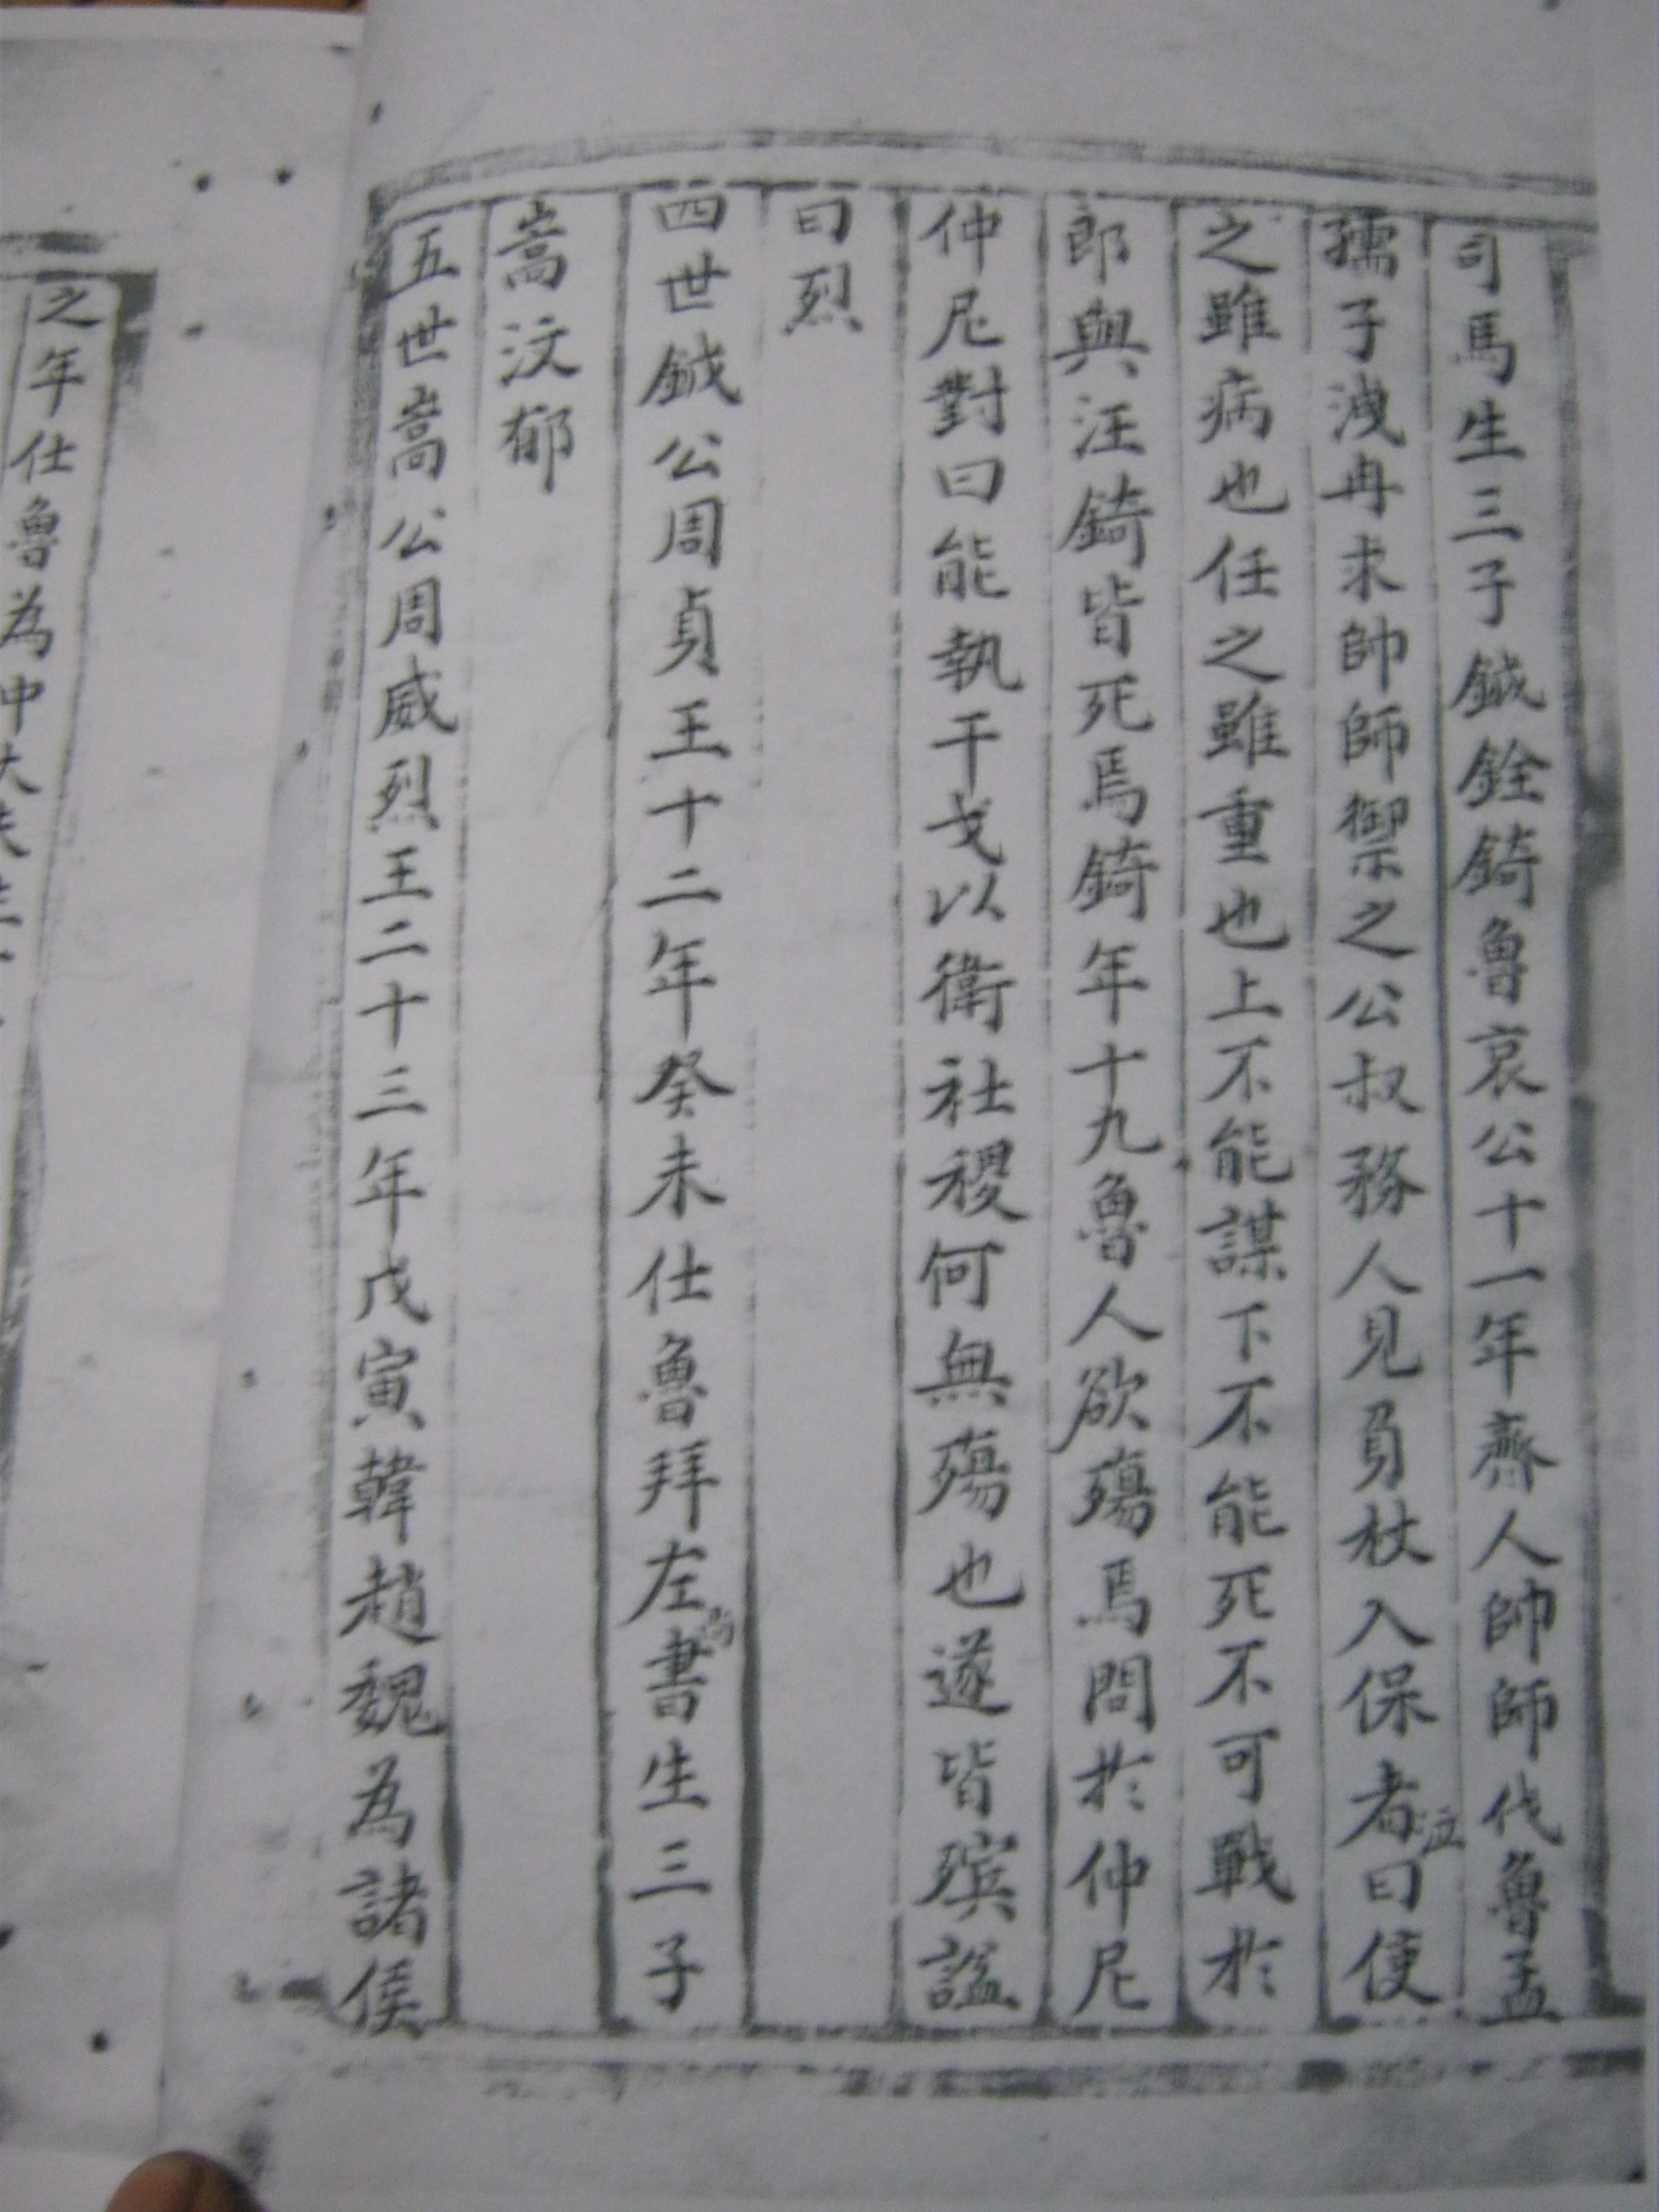 司馬生三子鉞銓錡魯哀公十一年齊人帥師伐魯孟
孺子洩冉求帥師禦之公叔務人見負杖入保者泣曰使
之雖病也任之雖重也上不能謀下不能死不可戰於
郎與汪錡皆死焉錡年十九魯人欲殤焉問於仲尼
仲尼對曰能執干戈以衛社稷何無殤也遂皆殯謚
曰烈
四世鉞公周貞王十二年癸未仕魯拜左尚書生三子
嵩汶郁
五世嵩公周威烈王二十三年戊寅韓趙魏為諸侯
之年仕魯為中大夫生